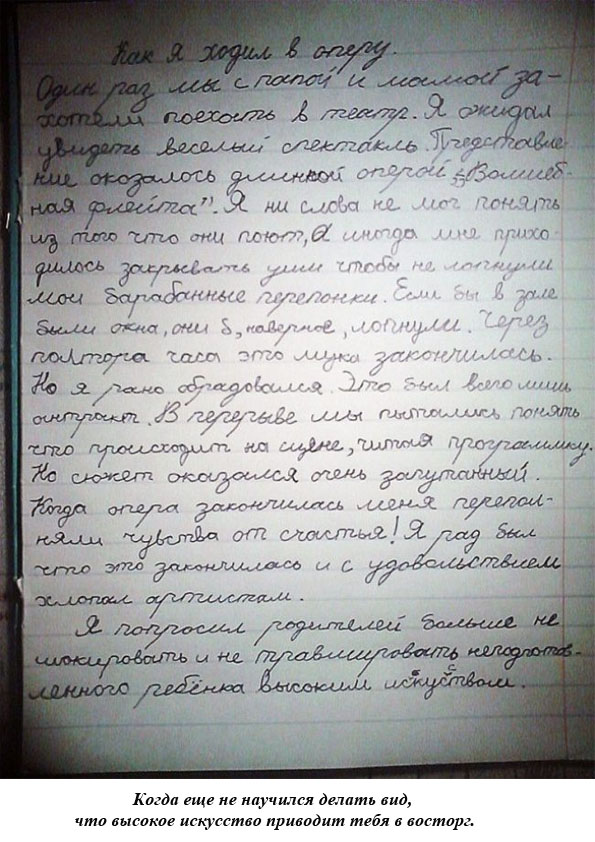 Как я ходил в оперу.
Один раз мы с папой и мамой за-
хотели поехать в театр. Я ожидал
увидеть веселый спектакль. Представле
ние оказалось длинной оперой „Волшеб-
ная флейта". Я ни слова не мог понять
из того что они поют, а иногда мне прихо-
дилось закрывать уши чтобы не лопнули
мои барабанные перепонки. Если бы в зале
были окна, они б, наверное, лопнули. Через
полтора часа это мука закончилась.
Но я рано обрадовался. Это был всего лишь
антракт. В перерыве мы пытались понять
что происходит на сцене, читая программку.
Но сюжет оказался очень запутанный.
Когда опера закончилась меня перепол-
няли чувства от счастья! Я рад был
что это закончилась и с удовольствием
хлопал артистам.
Я попросил родителей больше не
шокировать и не травмировать неподготов-
ленного ребёнка высоким искуством.
с
Когда еще не научился делать вид,
что высокое искусство приводит тебя в восторг.